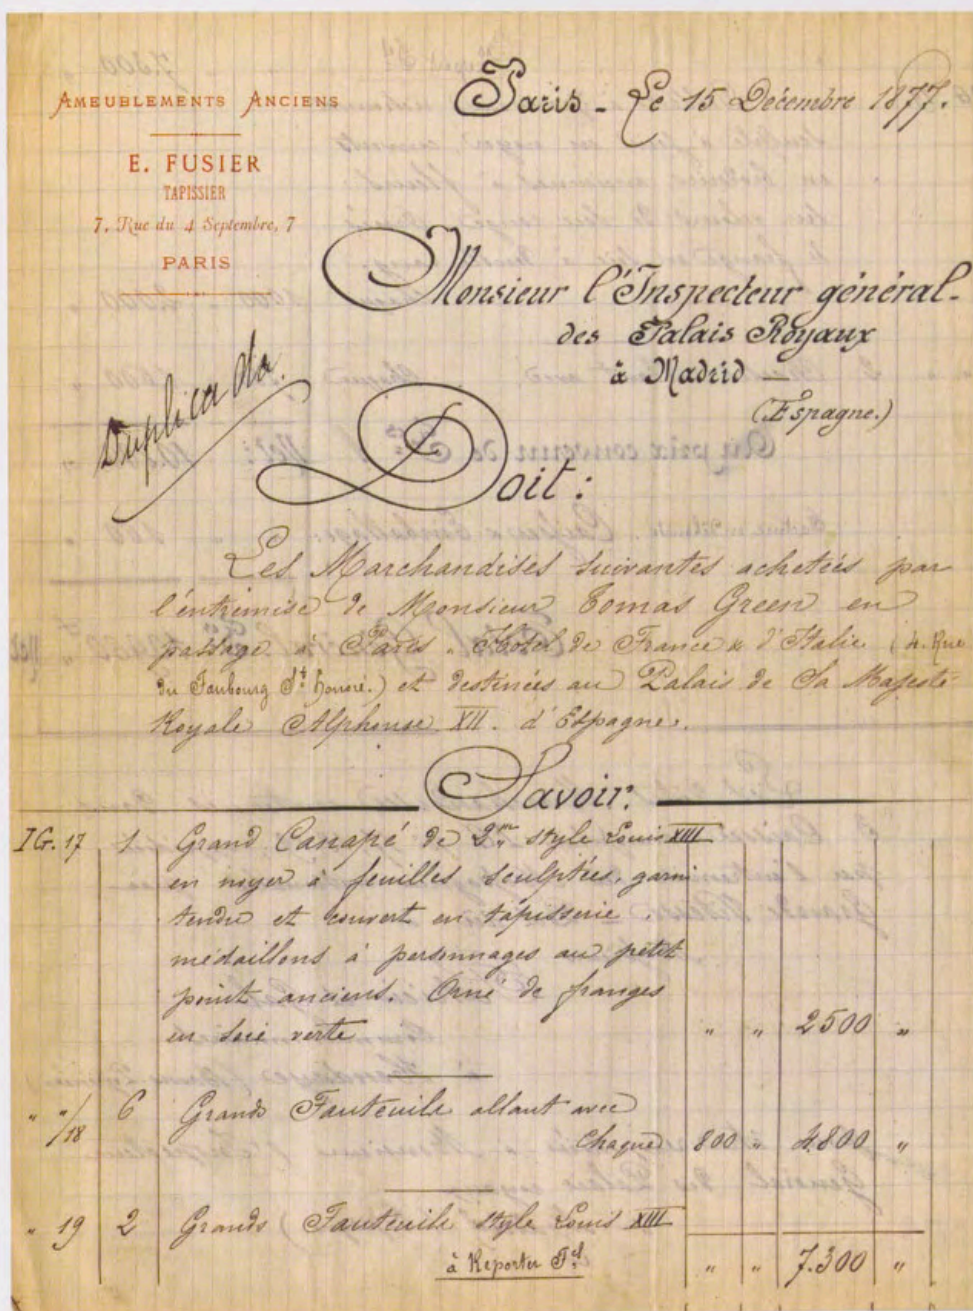 AMEUBLEMENTS ANCIENS
E. FUSIER
TAPISSIER
7, Rue du 4 Septembre, 7
PARIS
Paris - Le 15 Décembre 1877.
Monsieur l'Inspecteur général.
des Palais Royaux
à Madrid —
(Espagne.)
Duplicada.
Doit :
Les Marchandises suivantes achetées par
l'entremise de Monsieur Tomas Green en
passage à Paris. Hôtel de France & d'Italie (4. Rue
du Faubourg St. Honoré.) et destinées au Palais de Sa Majesté
Royale Alphonse XII. d'Espagne.
Savoir:
IG. 17 1 Grand Canapé de 2m. style Louis XIII
en noyer à feuilles sculptées, garni
tendu et couvert en tapisserie.
médaillons à personnages au petit
point anciens. Orné de franges
en soie verte " " 2500 "
" "/18 6 Grands Fauteuils allant avec
Chaques 800 " 4.800 "
" 19 2 Grands Fauteuils style Louis XIII
à Reporter Fs " " 7.300 "